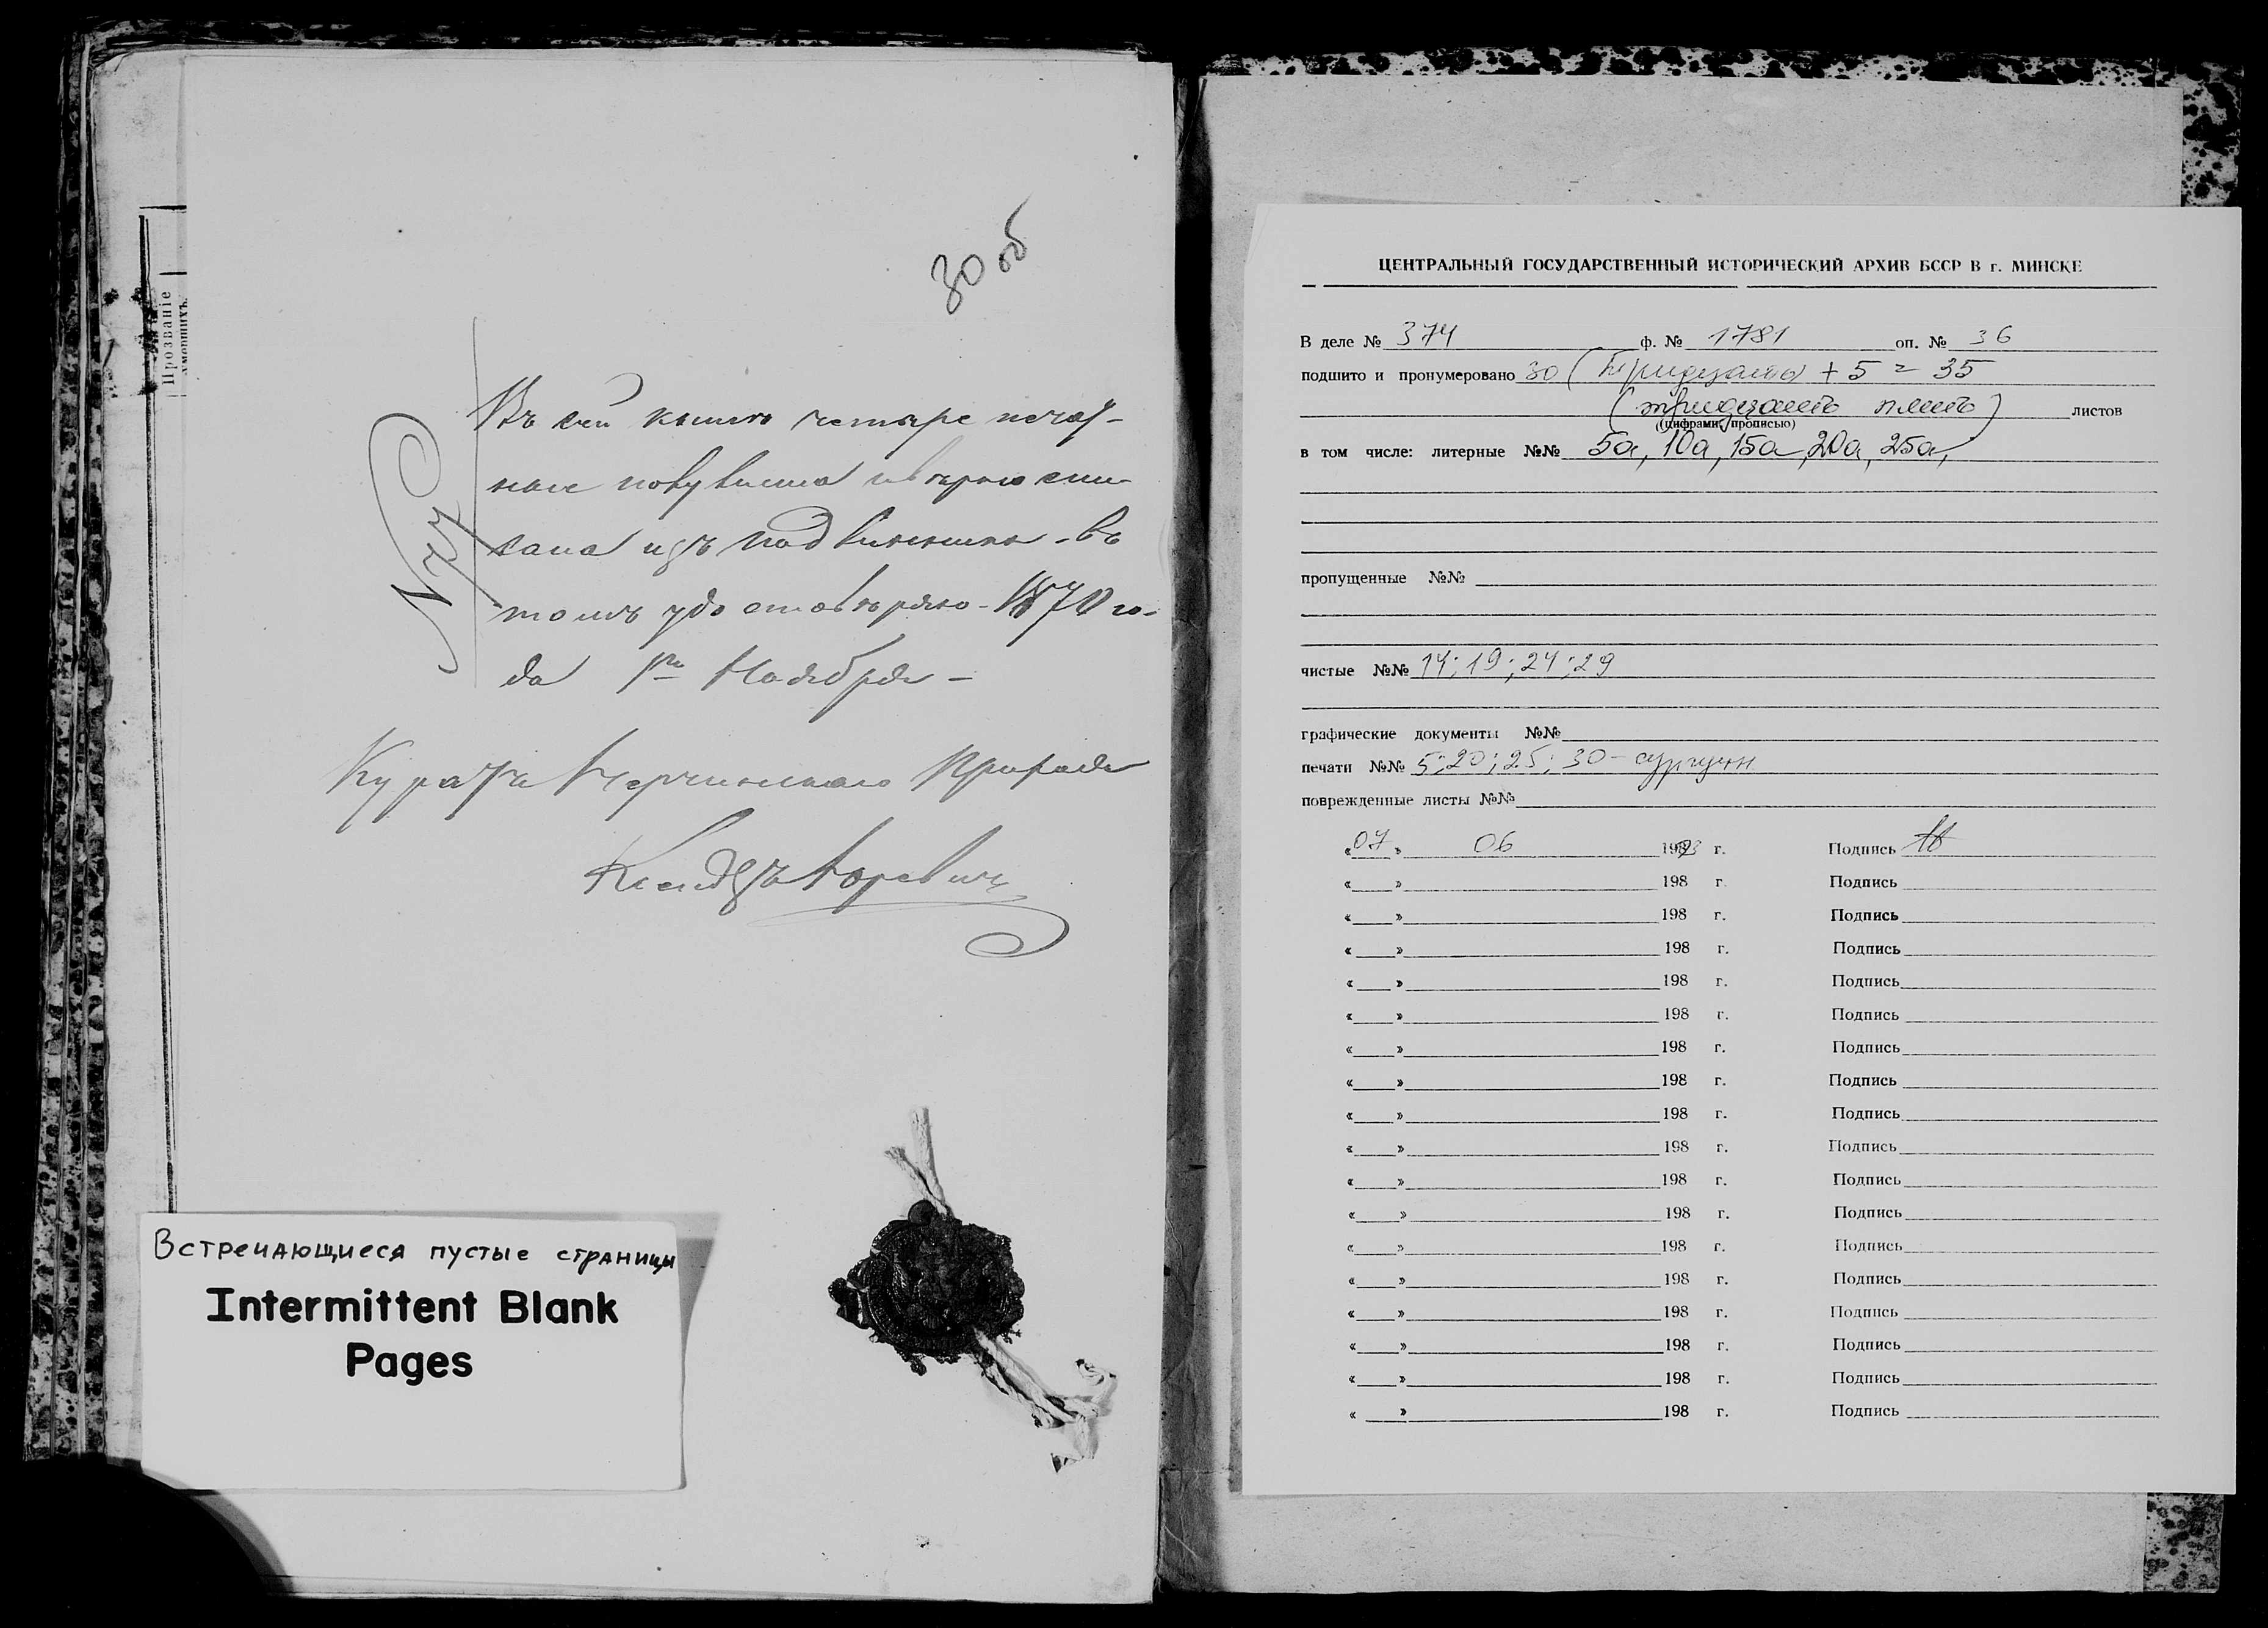 30 об
Прозваніе
умершихъ.
Въ сей книгѣ четыре печат-
ные
изъ подлинника въ
томъ удостовѣряю 1870 го-
да 1го Ноября
Куратъ
Ксендзъ
Встречающиеся пустые страницы
Intermittent Blank
Pages
ЦЕНТРАЛЬНЫЙ ГОСУДАРСТВЕННЫЙ ИСТОРИЧЕСКИЙ АРХИВ БССР В г. МИНСКЕ
В деле № 374 ф. № 1781 оп. № 36
подшито и пронумеровано 30 (тридцать) + 5 = 35
(тридцать пять) листов
(цифрами, прописью)
в том числе: литерные №№ 5а, 10а, 15а, 20а, 25а,
пропущенные №№
чистые №№ 14; 19; 24; 29
графические документы №№
печати №№ 5; 20; 25; 30 - сургучн.
поврежденные листы №№
« 07 » 06 г. Подпись
« » 198 г. Подпись
« » 198 г. Подпись
« » 198 г. Подпись
« » 198 г. Подпись
« » 198 г. Подпись
« » 198 г. Подпись
« » 198 г. Подпись
« » 198 г. Подпись
« » 198 г. Подпись
« » 198 г. Подпись
« » 198 г. Подпись
« » 198 г. Подпись
« » 198 г. Подпись
« » 198 г. Подпись
« » 198 г. Подпись
« » 198 г. Подпись
« » 198 г. Подпись